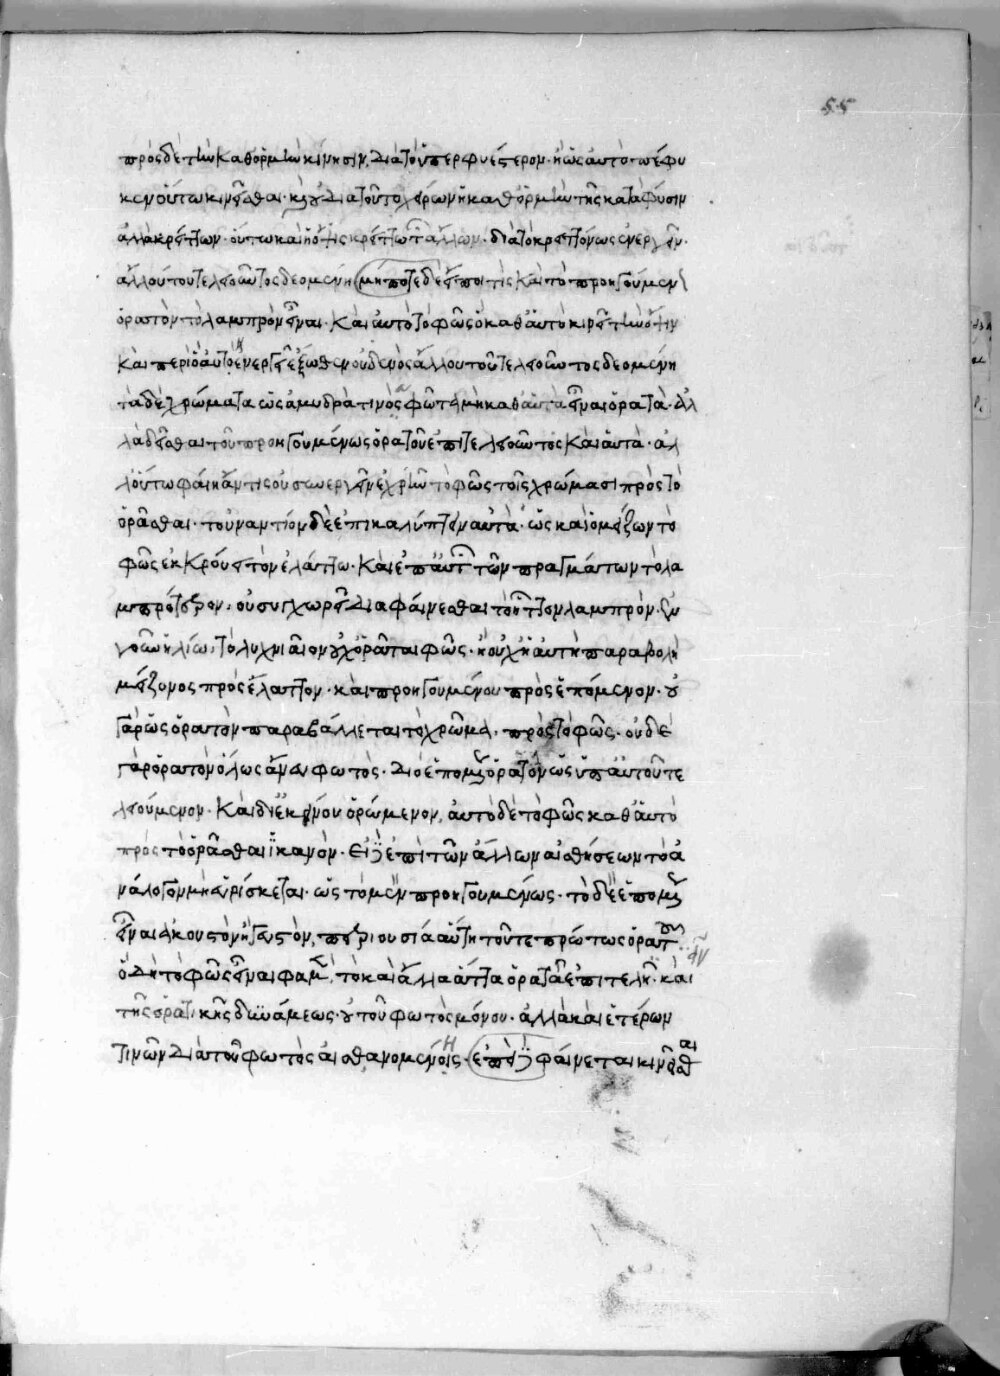 55
πρὸς δὲ τὴν καθ' ὁρμὴν κίνησιν, διὰ τὸ ὑπερφυέστερον. ἢ ὡς αὐτὸ πέφυ
κεν οὕτω κινεῖσθαι. καὶ οὐ διὰ τοῦτο χείρων ἡ καθ' ὁρμὴν τῆς κατὰ φύσιν
ἀλλὰ κρείττων. οὕτω καὶ ἡ ὄψις κρείττων τῶν ἄλλων. διὰ τὸ κρειττόνως ἐνεργεῖν.
ἀλλ' οὐ τοῦ τελειοῦντος δεομένη μήποτε δὲ εἴποι τις καὶ τὸ προηγούμεν
ὁρατὸν τὸ λαμπρὸν εἶναι. καὶ αὐτὸ τὸ φῶς ὃ καθ' αὑτὸ κινεῖ τὴν ὄψιν
καὶ περὶ ὃ αὐτὸ ἐνεργεῖ ἔξωθεν οὐδενὸς ἄλλου τοῦ τελειοῦντος δεομένη
τὰ δὲ χρώματα ὡς ἀμυδρὰ τινὸς φῶτα μὴ καθ' αὑτὰ εἶναι ὁρατὰ. ἀλ
λὰ δεῖσθαι τοῦ προηγουμένως ὁρατοῦ ἐπιτελειοῦντος καὶ αὐτὰ. ἀλ
λ' οὕτω φαίη ἄν τις οὐ συνεργεῖν ἐχρῆν τὸ φῶς τοῖς χρώμασι πρὸς τὸ
ὁρᾶσθαι. τοὐναντίον δὲ ἐπικαλύπτειν αὐτὰ. ὡς καὶ ὁ μείζων το
φῶς ἐκκρούει τὸν ἐλάττω. καὶ ἐπ' αὐτῶν τῶν πραγμάτων τὸ λα
μπρότερον, οὐ συγχωρεῖ διαφαίνεσθαι τὸ ἧττον λαμπρὸν.
γοῦν ἡλίῳ, τὸ λυχνιαῖον οὐχ ὁρᾶται φῶς. ἢ οὐχ ἡ αὐτὴ παραβολὴ
μείζονος πρὸς ἔλαττον. καὶ προηγουμένου πρὸς ἑπόμενον. οὐ
γὰρ ὡς ὁρατὸν παραβάλλεται τὸ χρῶμα, πρὸς τὸ φῶς. οὐδὲ
γὰρ ὁρατὸν ὅλως ἄνευ φωτὸς. διὸ ἑπομένως ὁρατὸν ὡς ὑπ' αὐτοῦ τε
λειούμενον. καὶ δι' ἐκεῖνου ὁρώμενον, αὐτὸ δὲ τὸ φῶς καθ' αὑτὸ
πρὸς τὸ ὁρᾶσθαι ἱκανὸν. εἰ δὲ ἐπὶ τῶν ἄλλων αἰσθήσεων τὸ ἀ
νάλογον μὴ εὑρίσκεται. ὡς τὸ μὲν προηγουμένως. τὸ δὲ ἑπομένως
εἶναι ἀκουστὸν ἢ γευστὸν, περιουσία αὕτη τοῦ τε πρώτως ὁρατοῦ
ὃ δὴ τὸ φῶς εἶναι φαμὲν, τὸ καὶ ἄλλα ἄττα ὁρατὰ ἐπιτελεῖν. καὶ
τῆς ὁρατικῆς δυνάμεως. οὐ τοῦ φωτὸς μόνου. ἀλλὰ καὶ ἑτέρων
τινῶν διὰ τοῦ φωτὸς αἰσθανομένης. ἐπεὶ δὲ φαίνεται κινεῖσθαι